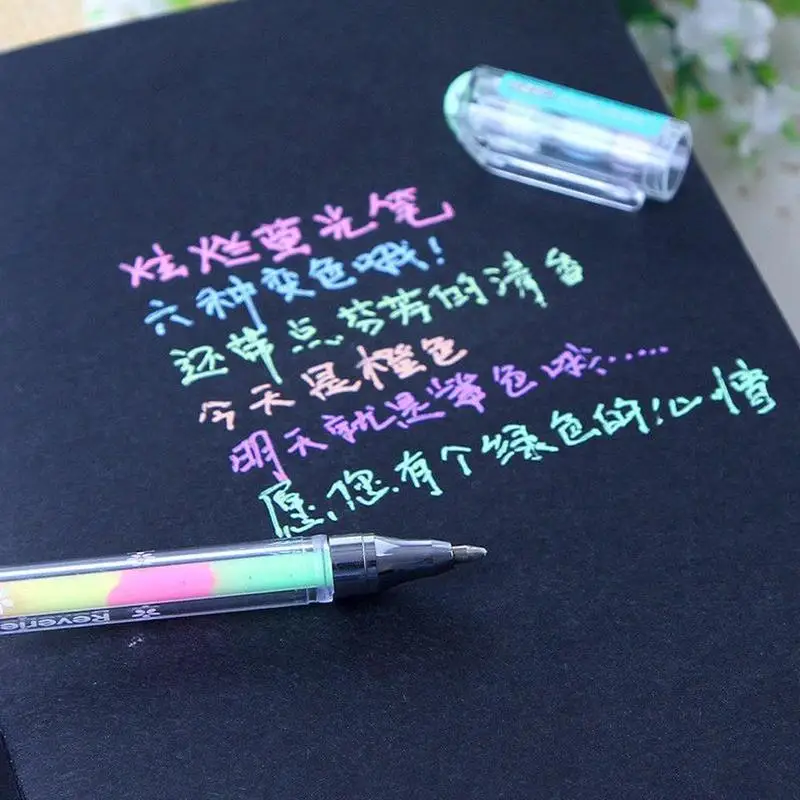 炫烂萤光笔
六种变色哦!
还带点芬芳的清香
今天是橙色
明天就是紫色哦……
愿您有个绿色的心情
Reverie